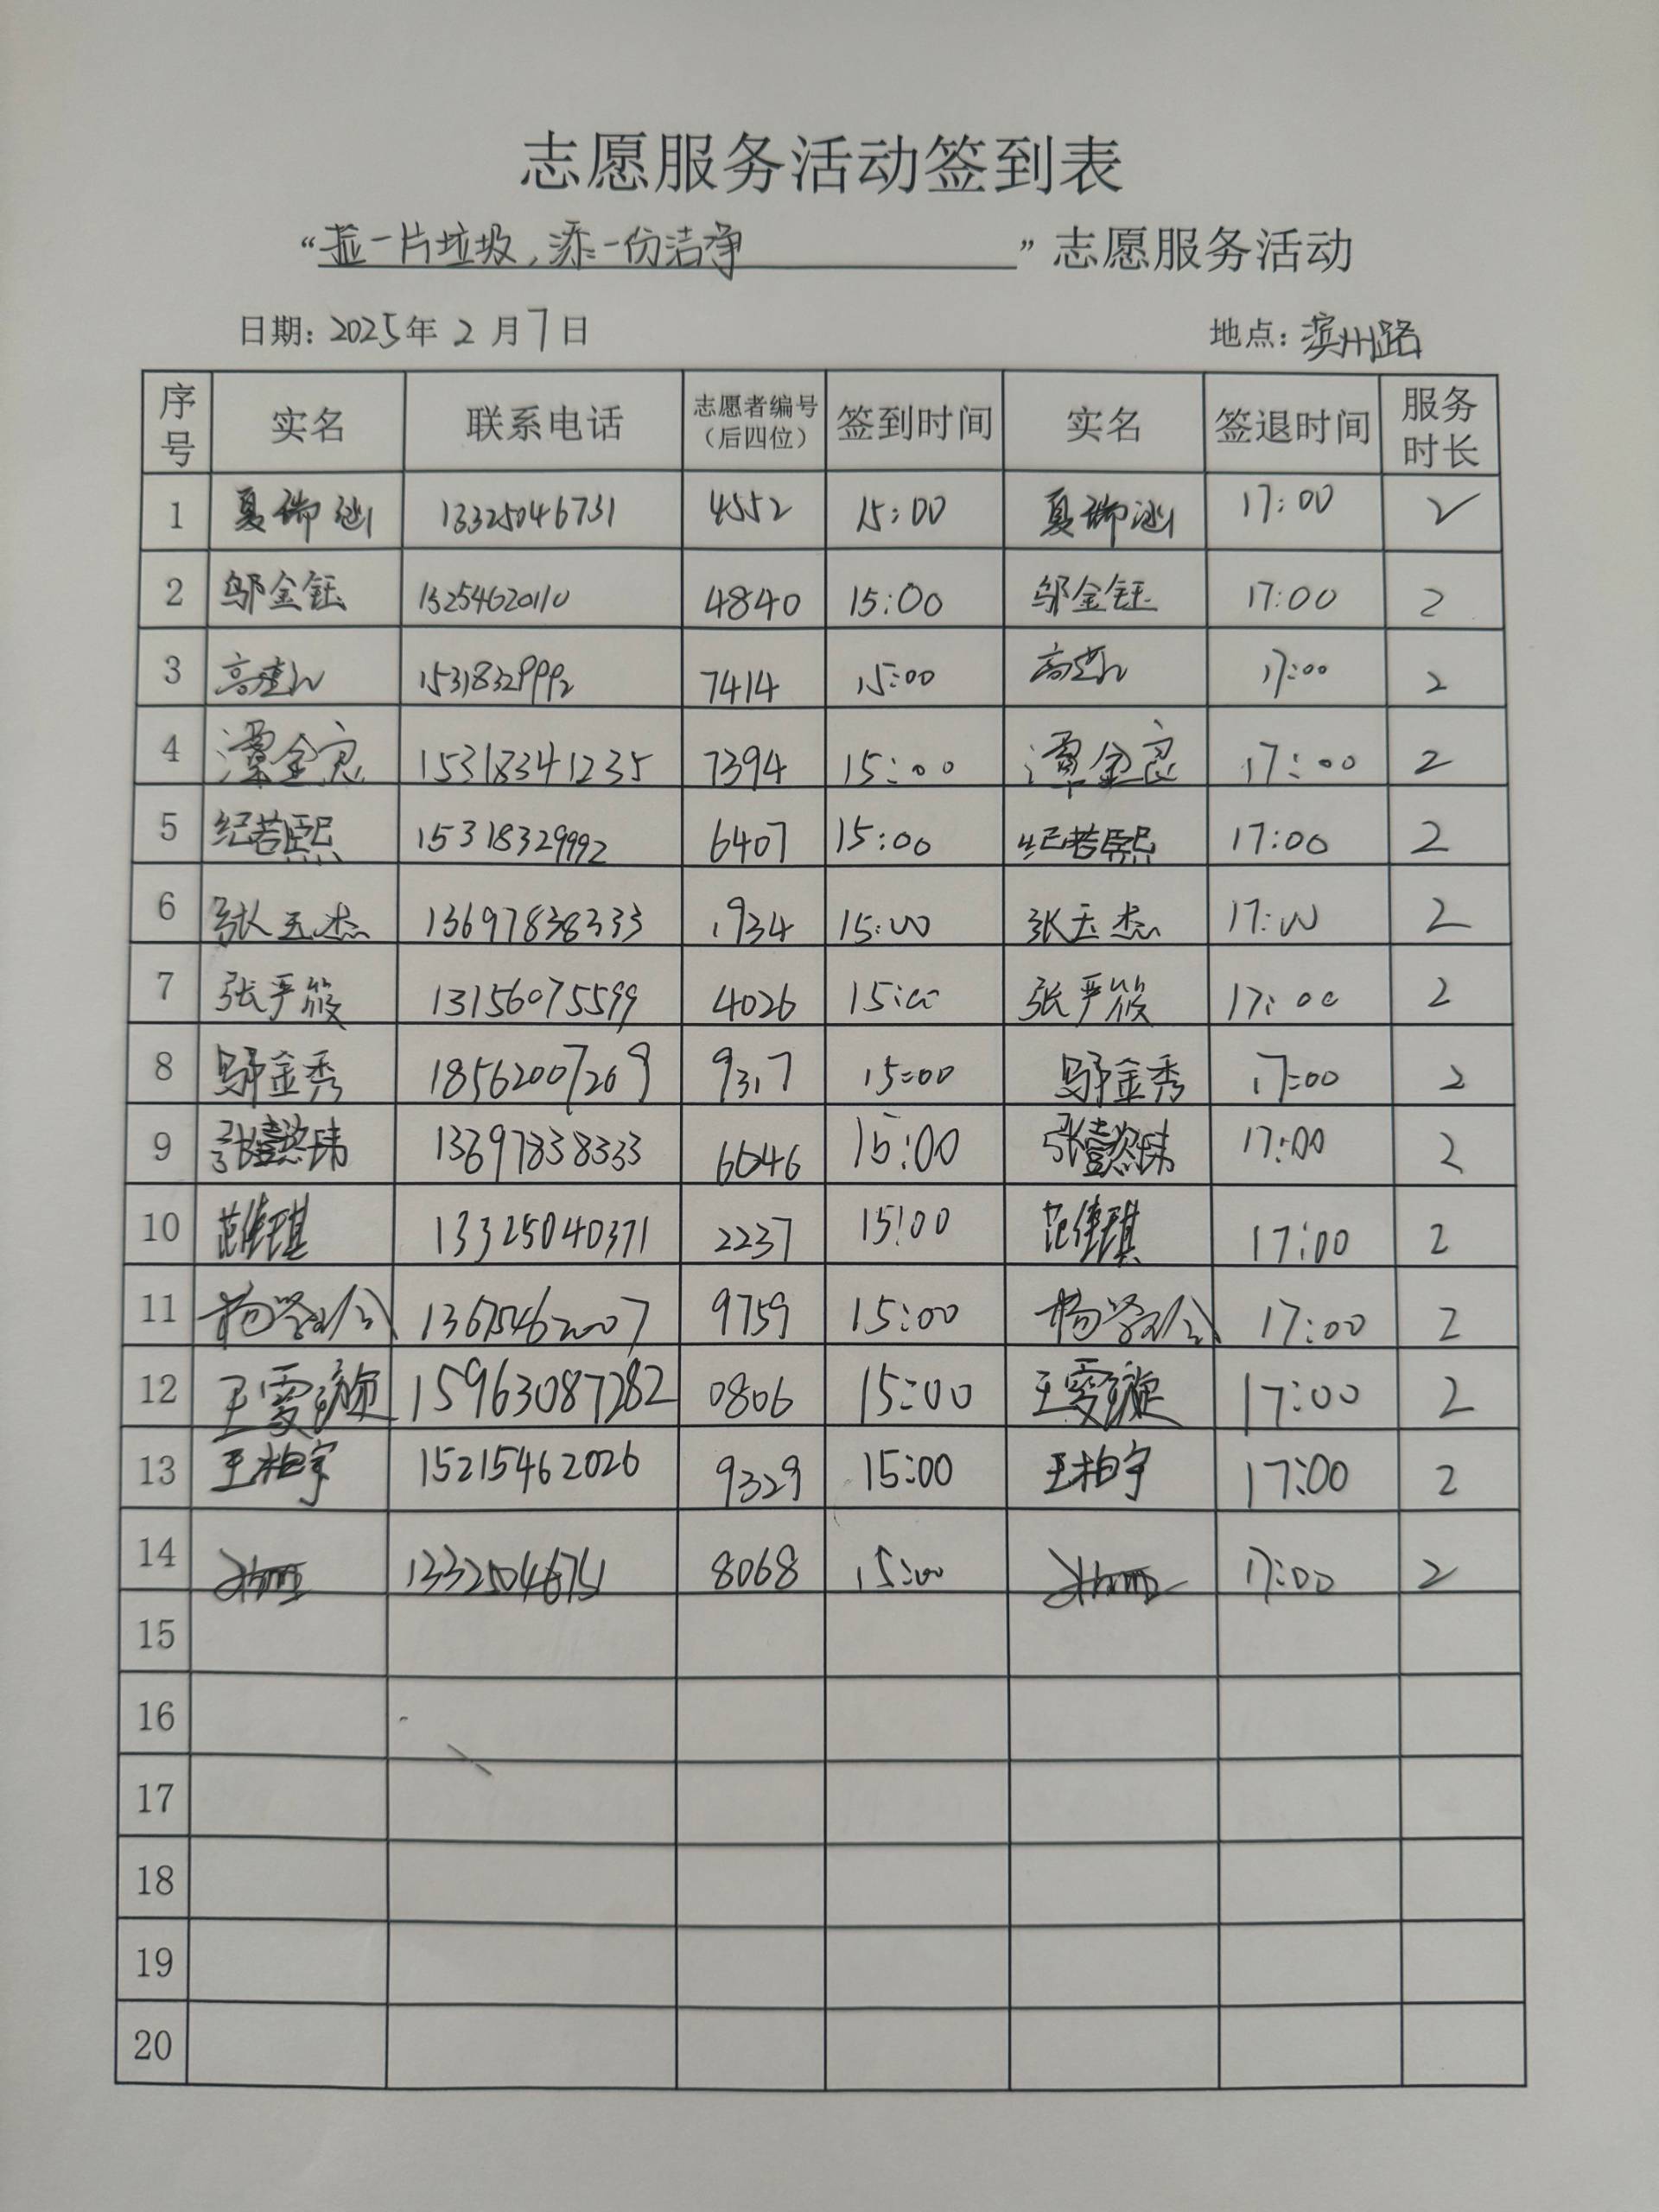 志愿服务活动签到表
“捡一片垃圾,添一份洁净”志愿服务活动
日期:2025年2月7日 地点:滨州路
序号 实名 联系电话 志愿者编号(后四位) 签到时间 实名 签退时间 服务时长
1 夏瑞涵 13325046731 4552 15:00 夏瑞涵 17:00 2
2 邬金钰 13254620110 4840 15:00 邬金钰 17:00 2
3 15318329992 7414 15:00 17:00 2
4 潭金良 15318341235 7394 15:00 潭金良 17:00 2
5 纪若熙 15318329992 6407 15:00 纪若熙 17:00 2
6 张玉杰 13697838333 1934 15:00 张玉杰 17:00 2
7 张严筱 13156075599 4026 15:00 张严筱 17:00 2
8 邬金秀 18562007269 9317 15:00 邬金秀 17:00 2
9 张懿玮 13697838333 6646 15:00 张懿玮 17:00 2
10 范维琪 13325040371 2237 15:00 范维琪 17:00 2
11 13675462007 9759 15:00 17:00 2
12 王雯璇 15963087282 0806 15:00 王雯璇 17:00 2
13 王柏宇 15215462026 9329 15:00 王柏宇 17:00 2
14 13325046751 8068 15:00 17:00 2
15
16
17
18
19
20